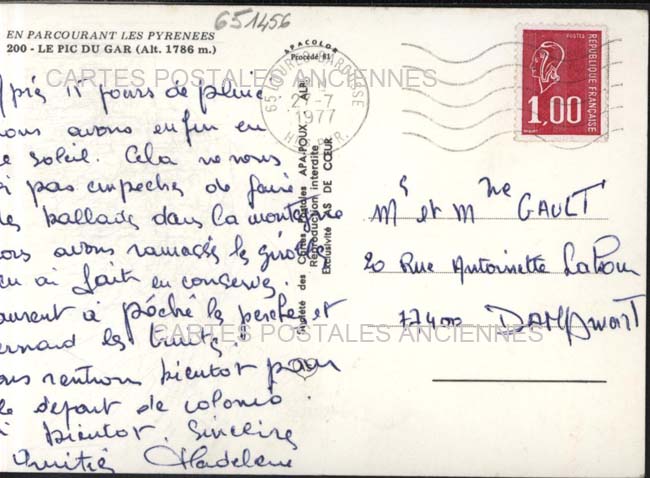 651456
EN PARCOURANT LES PYRENEES
200 - LE PIC DU GAR (Alt. 1786 m.)
près 15 jours de pluie
nous avons enfin eu
e soleil. Cela ne nous
pas empecher de faire
des ballades dans la montagne
ous avons ramassés
à fait en conserves.
aurent à pêché la perche et
ernard les truites.
ous rentrons bientot pour
le départ de colonie.
bientot. Sincère
Amitiés Madeleine
APACOLOR
Procédé 81
Société des Cartes Postales APA-POUX ALBI
Reproduction interdite
Exclusivité AS DE CŒUR
65 LOURES-BAROUSSE
27-7
1977
HTES PYR.
POSTES
RÉPUBLIQUE FRANÇAISE
1,00
Mr et Mme GAULT
20 Rue Antoinette
77400 DAMPMART
CARTES POSTALES ANCIENNES
CARTES POSTALES ANCIENNES